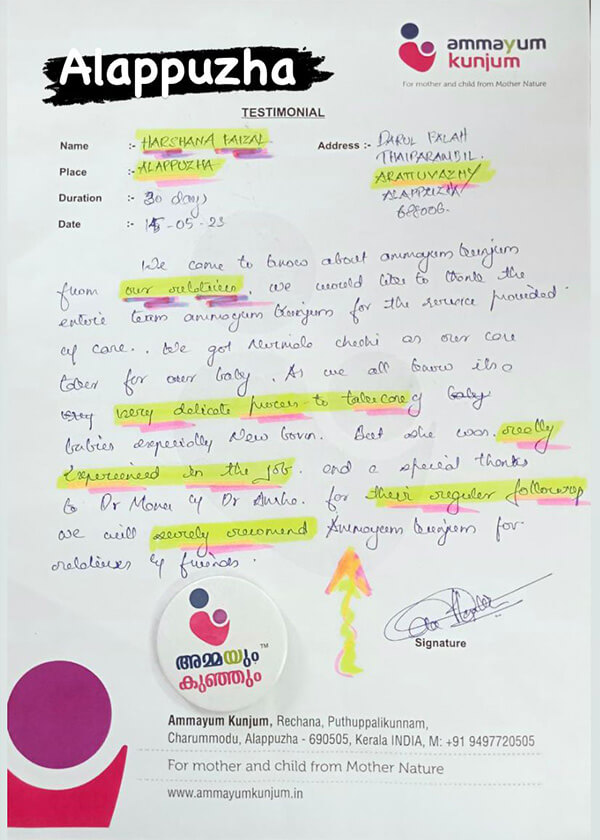 Alappuzha
ammayum
kunjum
For mother and child from Mother Nature
TESTIMONIAL
Name :- HARSHANA FAIZAL Address :- DARUL FALAH
THAIPARANBIL.
Place :- ALAPPUZHA ARATTUVAZHY
ALAPPUZHA
Duration :- 30 days 688006.
Date :- 15-05-23
We came to know about ammayum kunjum
from our relatives, we would like to thank the
entire team ammayum kunjum for the service provided
of care. We got Nirmala chechi as our care
taker for our baby. As we all know its a
very delicate process to take care of baby
babies especially New born. But she was really
experienced in the job. and a special thanks
to Dr & Dr for their regular followup
we will recomend Ammayum kunjum for
relatives & friends.
Signature
അമ്മയും TM
കുഞ്ഞും
Ammayum Kunjum, Rechana, Puthuppalikunnam,
Charummodu, Alappuzha - 690505, Kerala INDIA, M: +91 9497720505
For mother and child from Mother Nature
www.ammayumkunjum.in